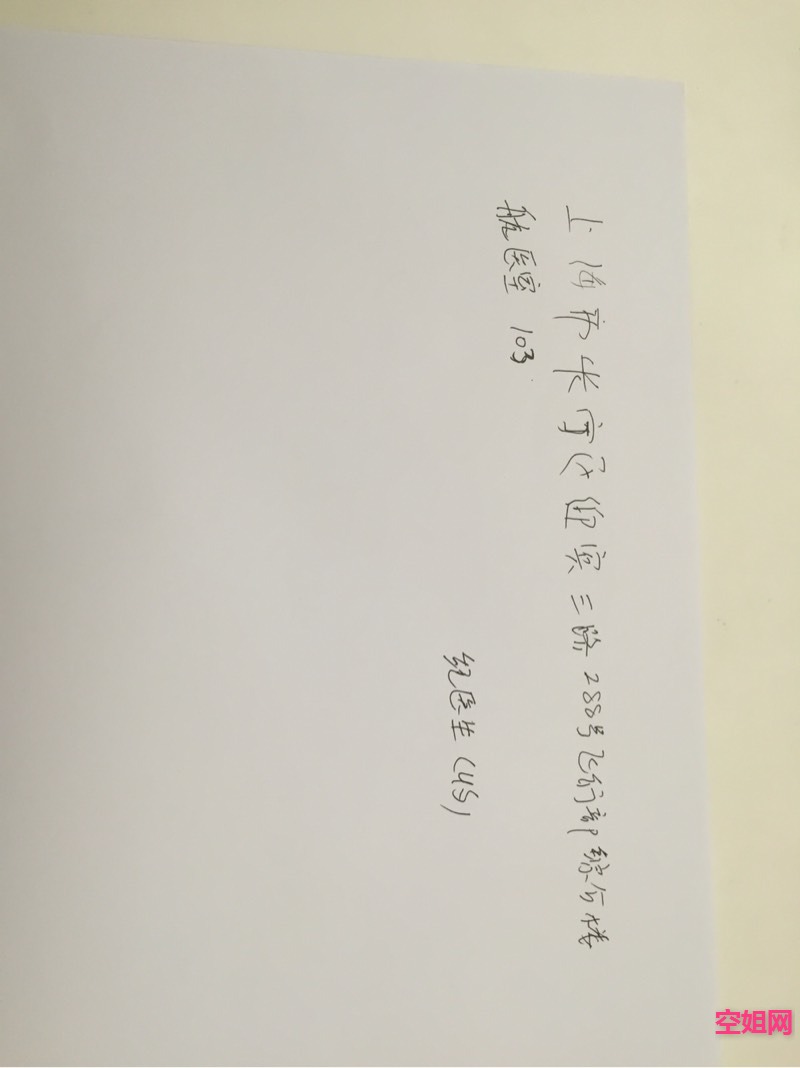 上海市长宁区迎宾三路288号飞行部综合楼
航医室 103
纪医生(收)
空姐网